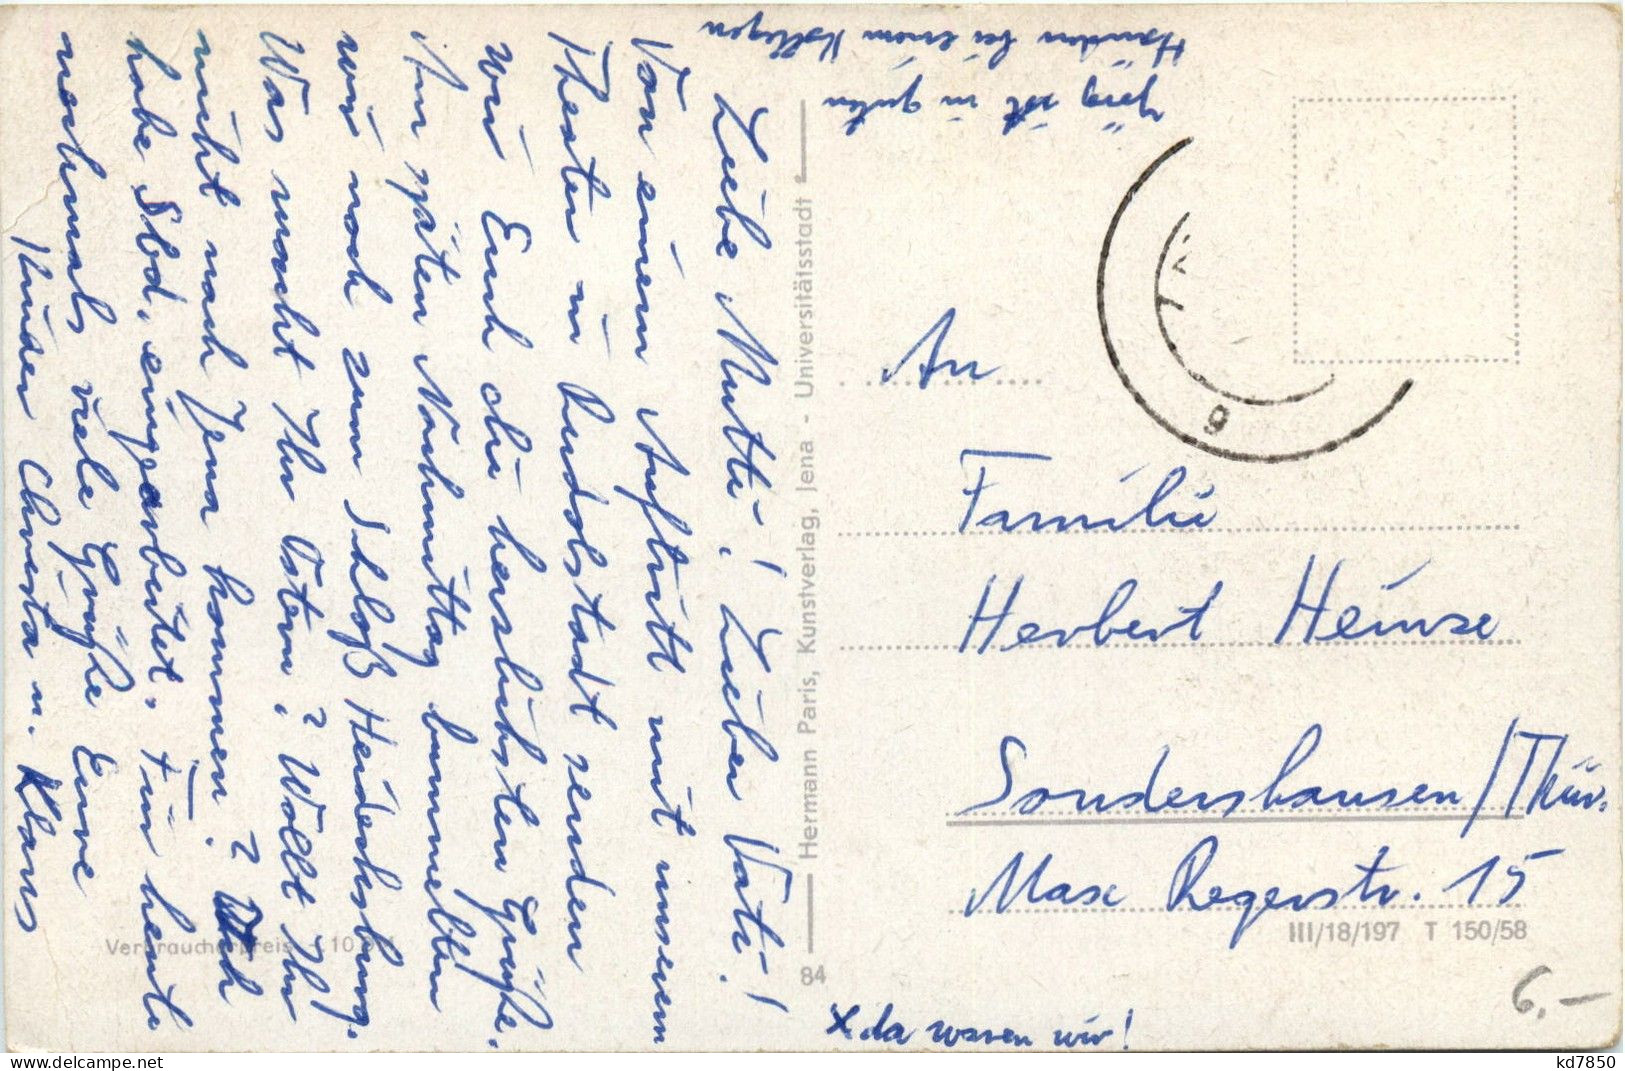 Liebe Mutti! Lieber Vati!
Von einem Auftritt mit unserem
Theater in Rudolstadt senden
wir Euch die herzlichsten Grüße.
Am späten Nachmittag bummelten
wir noch zum Schloß Heidecksburg.
Was macht Ihr Ostern? Wollt Ihr
nicht nach Jena kommen? Ich
habe Sbd. eingearbeitet. Für heute
nochmals viele Grüße Eure
Kinder Christa u. Klaus
Jörg ist in guten
Händen bei einem Kollegen
An
Familie
Herbert Heinze
Sondershausen/Thür.
Max Regerstr. 15
x da waren wir!
Hermann Paris, Kunstverlag, Jena - Universitätsstadt
84
Verbraucherpreis -,10 DM
III/18/197 T 150/58
9
6,-
kd7850
www.delcampe.net